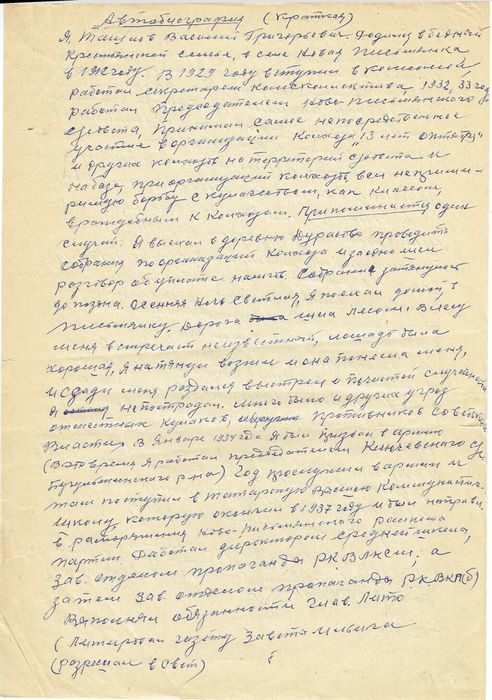 Автобиография (краткая)
Я, Василий Григорьевич. Родился в бедной
крестьянской семье, в селе Новая Письмянка
в 1912 году. В 1927 году вступил в комсомол,
работал секретарем комсомольства 1932, 33 год
работал председателем Ново-Письмянского
с/совета, принимал самое непосредственное
участие в организации колхоза "13 лет Октября"
и других колхозов на территории с/совета и
на базе, при организации колхозов вел неприми-
римую борьбу с кулачеством, как классом,
враждебным к колхозам. Припоминается один
случай. Я выехал в деревню Дурасово проводить
собрание по организации колхоза и заодно вели
разговор об уплате налога. Собрание затянулось
до поздна. Осенняя ночь светлая, я поехал домой, в
Письмянку. Дорога шла лесом. В лесу
меня встречает неизвестный, лошадь была
хорошая, я натянул вожжи и она понесла меня,
и сзади меня раздался выстрел и по чистой случайности
я не пострадал. Много было и других угроз
от местных кулаков, противников Советской
власти. В январе 1934 года я был призван в армию
(в это время я работал председателем Ключевского с/с
Бугульминского р-на) год прослужил в армии и
там поступил в татарскую высшую коммунистич.
школу, которую окончил в 1937 году и был направл.
в распоряжение Ново-Письмянского райкома
партии. Работал директором средней школы,
зав. отделом пропаганды РК ВЛКСМ, а
затем зав. отделом пропаганды РК ВКП(б)
Выполнял обязанности глав. Лито
( газету Заветы Ильича
(разрешал в свет)